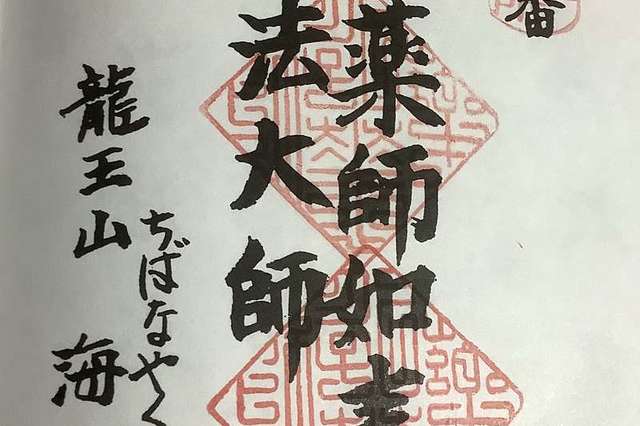 番
薬師如来
法大師
ぢばなやく
龍王山 海